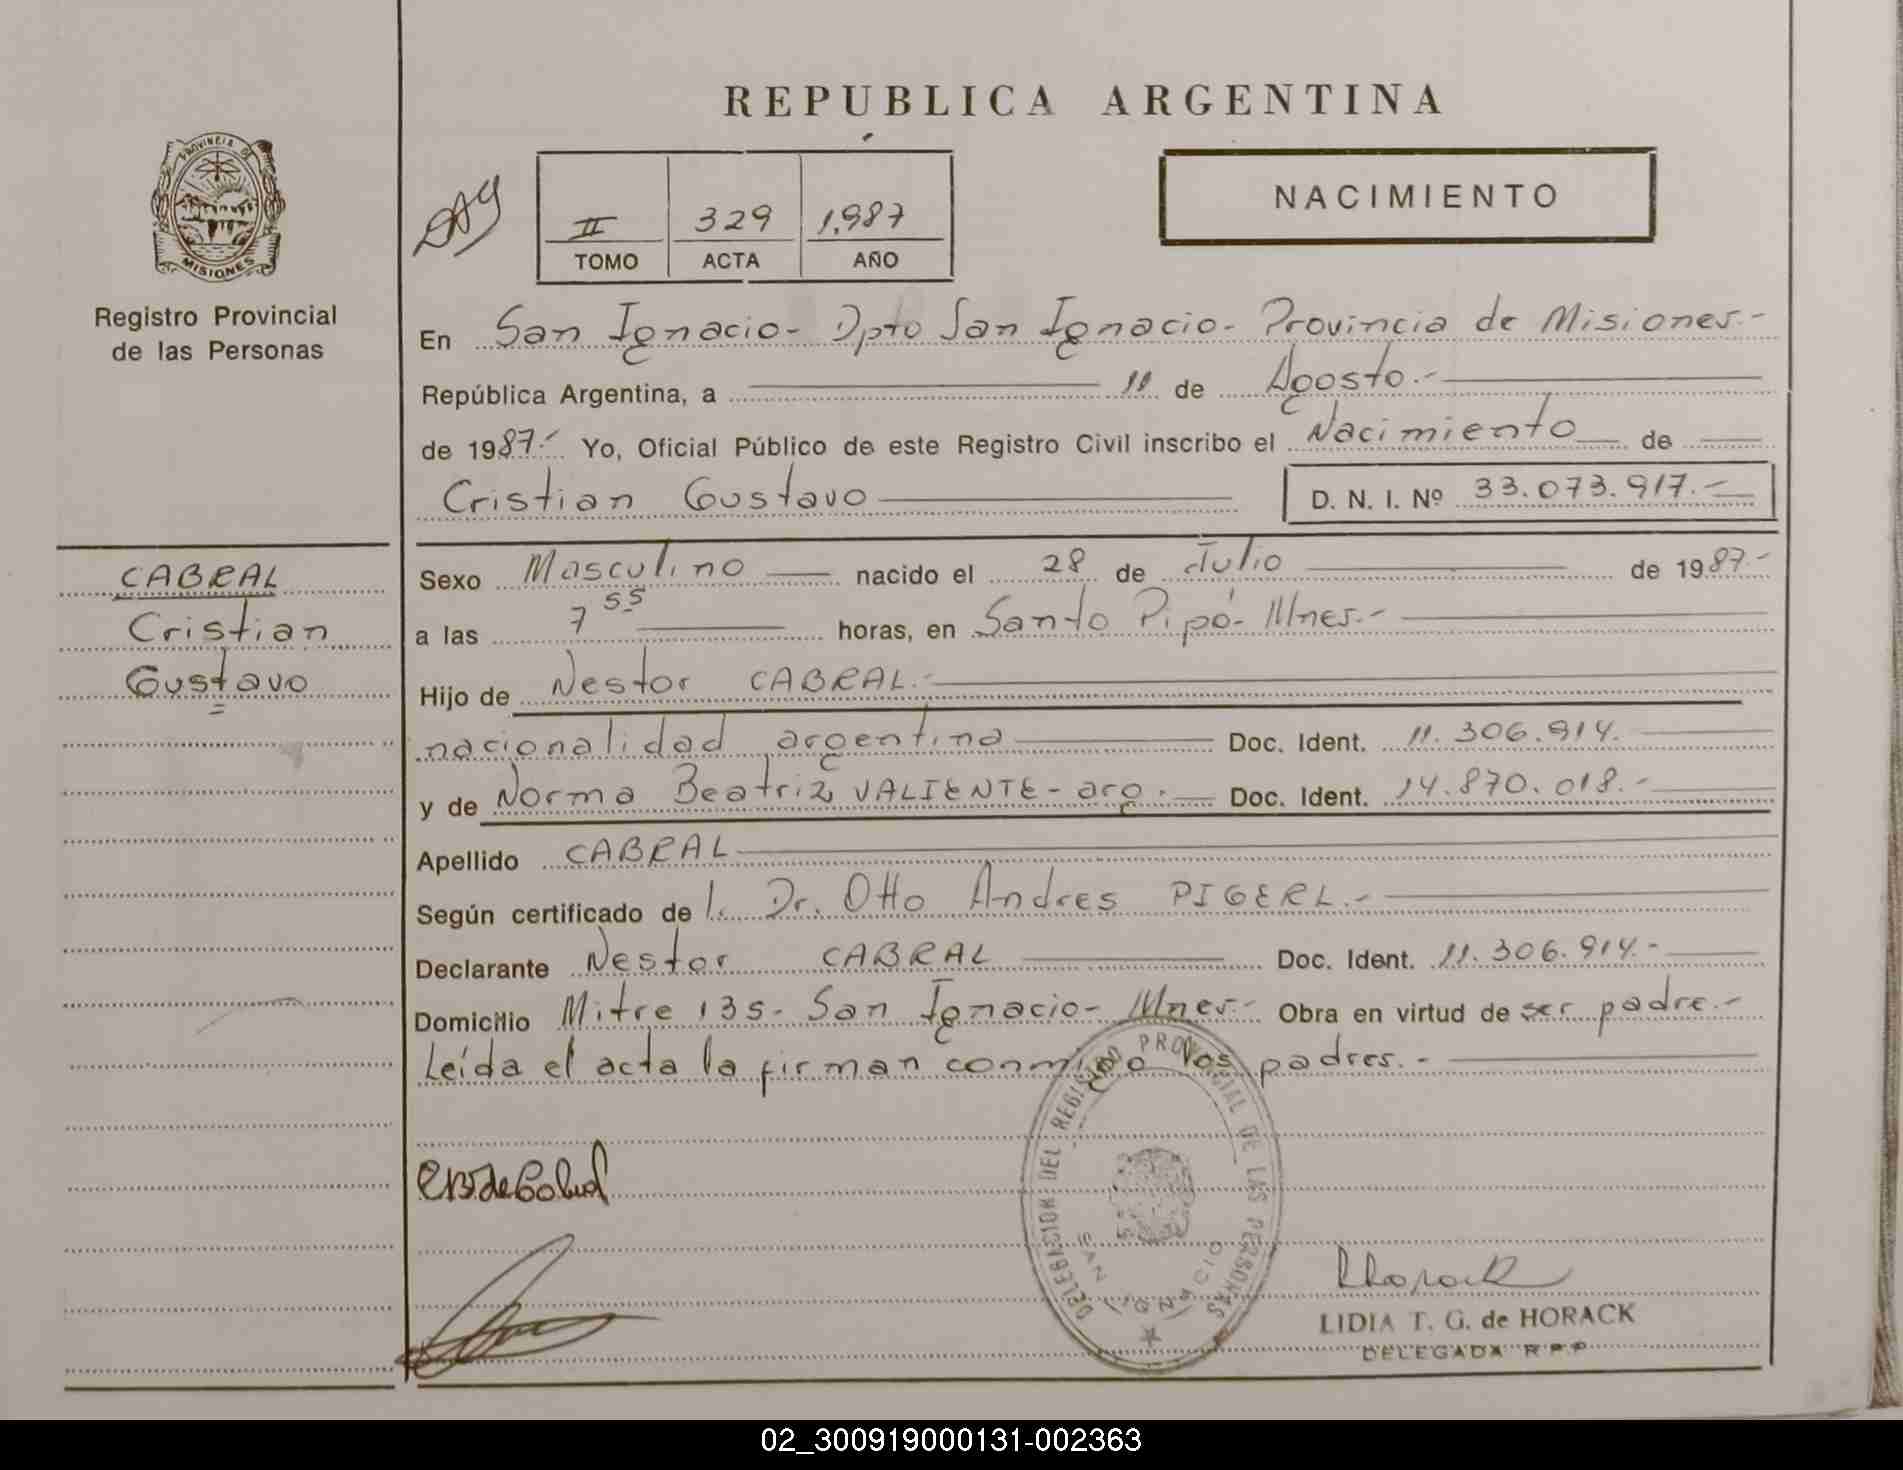 REPUBLICA ARGENTINA
PROVINCIA DE
MISIONES
Registro Provincial
de las Personas
II 329 1.987
TOMO ACTA AÑO
NACIMIENTO
En San Ignacio- Dpto San Ignacio- Provincia de Misiones.-
República Argentina, a 11 de Agosto.-
de 1987.- Yo, Oficial Público de este Registro Civil inscribo el Nacimiento de
Cristian Gustavo D. N. I. Nº 33.073.917.-
CABRAL
Cristian
Gustavo
Sexo Masculino nacido el 28 de Julio de 1987.-
a las 7 55 horas, en Santo Pipó- Mnes.-
Hijo de Nestor CABRAL.-
nacionalidad argentina Doc. Ident. 11.306.914.
y de Norma Beatriz VALIENTE- arg. Doc. Ident. 14.870.018.-
Apellido CABRAL
Según certificado de l. Dr. Otto Andres PIGERL.-
Declarante Nestor CABRAL Doc. Ident. 11.306.914.-
Domicilio Mitre 135- San Ignacio- Mnes.- Obra en virtud de ser padre.-
Leída el acta la firman conmigo los padres.-
DELEGACION DEL REGISTRO PROVINCIAL DE LAS PERSONAS
SAN IGNACIO
LIDIA T. G. de HORACK
DELEGADA R P P
02_300919000131-002363